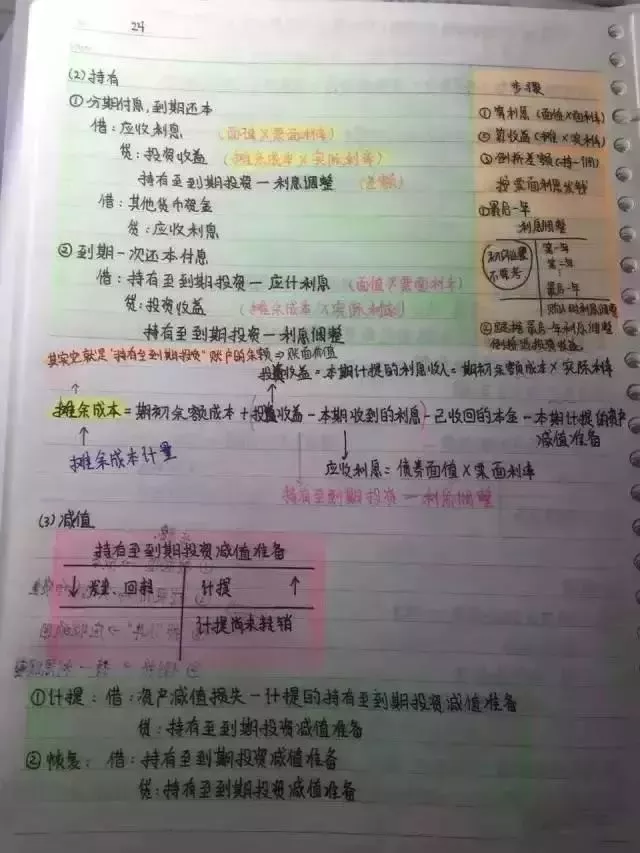 24
(2) 持有
① 分期付息,到期还本
借: 应收利息 (面值×票面利率)
贷: 投资收益 (摊余成本×实际利率)
持有至到期投资—利息调整 (差额)
借: 其他货币资金
贷: 应收利息
② 到期一次还本付息
借: 持有至到期投资—应计利息 (面值×票面利率)
贷: 投资收益 (摊余成本×实际利率)
持有至到期投资—利息调整
步骤
① 算利息 (面值×面利率)
② 算收益 (摊×实利率)
③ 倒挤差额
按票面利息
最后一年
利息调整
初
不等
第一年
第二年
最后一年
利息调整
② 最后一年利息调整
倒挤出投资收益
其实也就是“持有至到期投资”账户的余额⇒账面价值
投资收益=本期计提的利息收入=期初余额成本×实际利率
摊余成本=期初余额成本+(投资收益-本期收到的利息)-已收回的本金-本期计提的资产
减值准备
摊余成本计量
应收利息=债券面值×票面利率
持有至到期投资—利息调整
(3) 减值
持有至到期投资减值准备
↓发生、回转 计提 ↑
计提尚未转销
①计提: 借: 资产减值损失—计提的持有至到期投资减值准备
贷: 持有至到期投资减值准备
②恢复: 借: 持有至到期投资减值准备
贷: 持有至到期投资减值准备